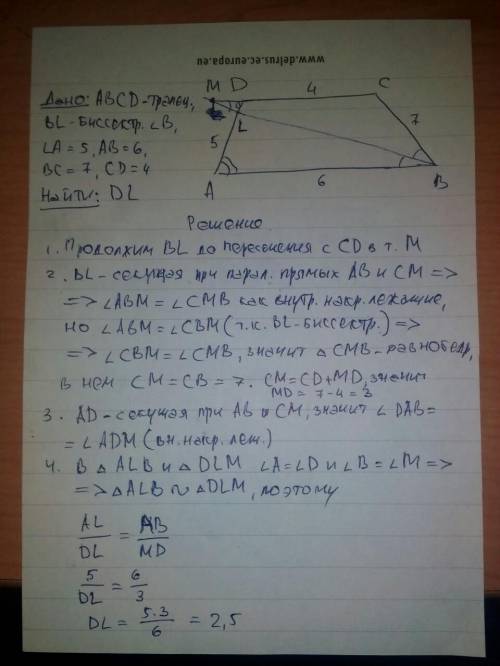 www.delrus.ec.europa.eu
M D 4 C
Дано: ABCD-трапец,
BL-биссектр. ∠B,
LA = 5, AB = 6,
BC = 7, CD = 4
Найти: DL
L
5
7
A 6 B
Решение
1. Продолжим BL до пересечения с CD в т. M
2. BL-секущая при парал. прямых AB и CM =>
=> ∠ABM = ∠CMB как внутр. накр. лежащие,
но ∠ABM = ∠CBM (т.к. BL-биссектр.) =>
=> ∠CBM = ∠CMB, значит △ CMB-равнобедр,
в нем CM = CB = 7. CM = CD + MD, значит
MD = 7-4 = 3
3. AD-секущая при AB и CM, значит ∠ DAB =
= ∠ADM (вн. накр. леж.)
4. В △ ALB и △ DLM ∠A = ∠D и ∠B = ∠M =>
=> △ ALB ∾ △ DLM, поэтому
AL/DL = AB/MD
5/DL = 6/3
DL = 5·3/6 = 2,5